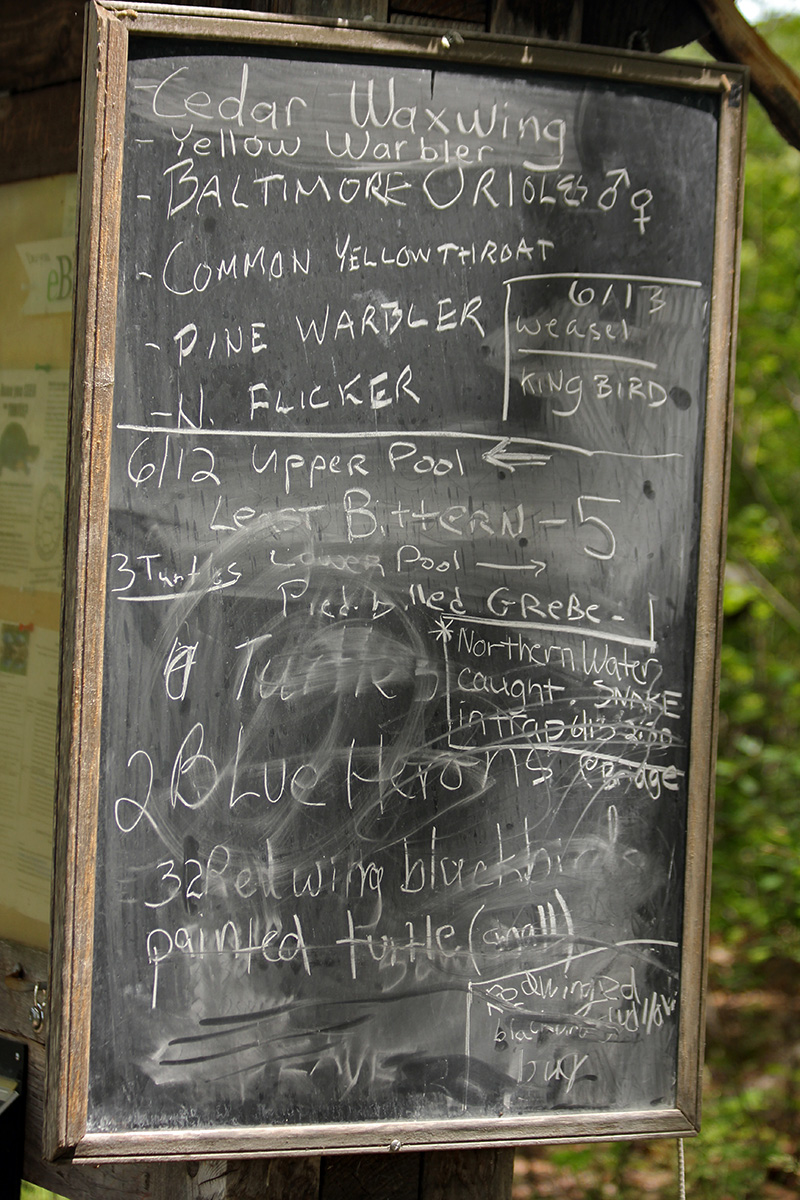 - Cedar Waxwing
- Yellow Warbler
- BALTIMORE ORIOLES ♂ ♀
- COMMON YELLOWTHROAT
- PINE WARBLER
- N. FLICKER
6/13
weasel
KINGBIRD
6/12 Upper Pool ←
Least BitterN - 5
3 Turtles Lower Pool →
Pied-billed GReBe - 1
* Northern Water
caught. SNAKE
in trap 6/13
@Bridge
2 BLue Herons
32 Redwing blackbirds
painted turtle (small)
Redwinged
eB